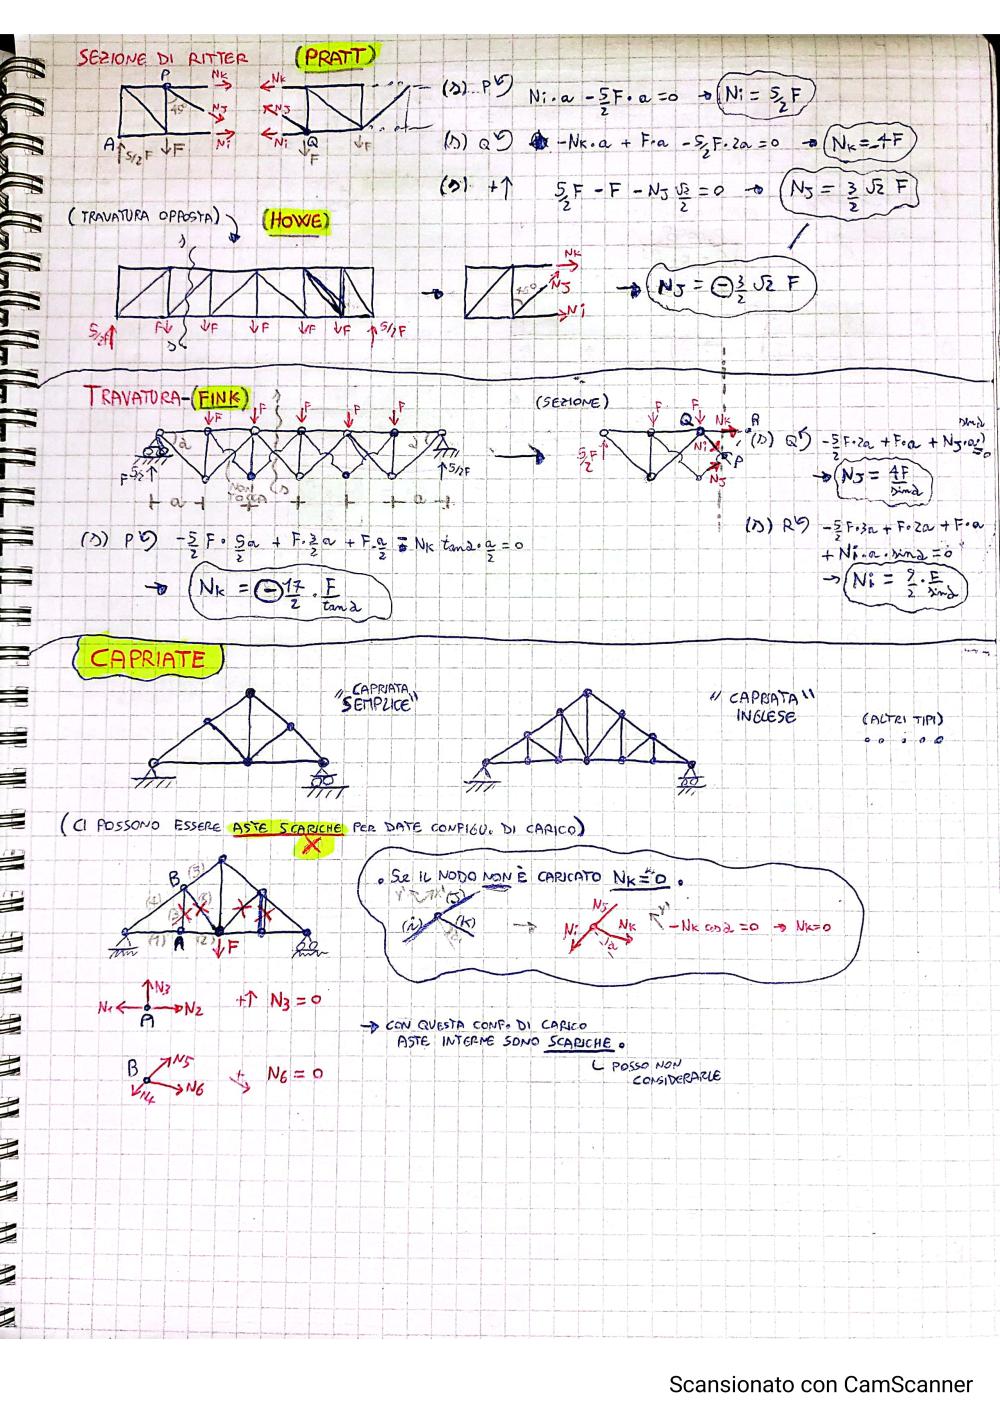 SEZIONE DI RITTER (PRATT)
P NK NK
45° NJ NJ
A 5/2F F Ni Ni Q F F
(S) P Ni·a - 5/2 F·a = 0 → Ni = 5/2 F
(S) Q -NK·a + F·a - 5/2 F·2a = 0 → NK = -4F
(S) +↑ 5/2 F - F - NJ √2/2 = 0 → NJ = 3/2 √2 F
(TRAVATURA OPPOSTA) (HOWE)
S NK
45° NJ
Ni
→ NJ = - 3/2 √2 F
5/2F F F F F F 5/2F
S
TRAVATURA - (FINK)
F F F F F
(SEZIONE)
F F Q NK R
α α
5/2 F Ni P NJ
F 5/2 NON TOCCA S 5/2F
a a
(S) Q -5/2 F·2a + F·a + NJ·a sinα = 0
→ NJ = 4F/sinα
(S) R -5/2 F·3a + F·2a + F·a
+ Ni·a·sinα = 0
→ Ni = 9/2 · F/sinα
(S) P -5/2 F · 5/2 a + F·3/2 a + F·a/2 - NK tanα·a/2 = 0
→ NK = - 17/2 · F/tanα
CAPRIATE
"CAPRIATA SEMPLICE"
"CAPRIATA" INGLESE
(ALTRI TIPI)
(CI POSSONO ESSERE ASTE SCARICHE PER DATE CONFIGU. DI CARICO)
X
B (5)
(4) (3) (6)
(1) A (2) F
• SE IL NODO NON È CARICATO NK = 0.
(J)
(i) (K)
→ NJ Ni NK α
-NK cosα = 0 → NK = 0
N1 N3 N2 A
+↑ N3 = 0
B N5 N4 N6
+ N6 = 0
→ CON QUESTA CONF. DI CARICO
ASTE INTERNE SONO SCARICHE.
POSSO NON
CONSIDERARLE
Scansionato con CamScanner